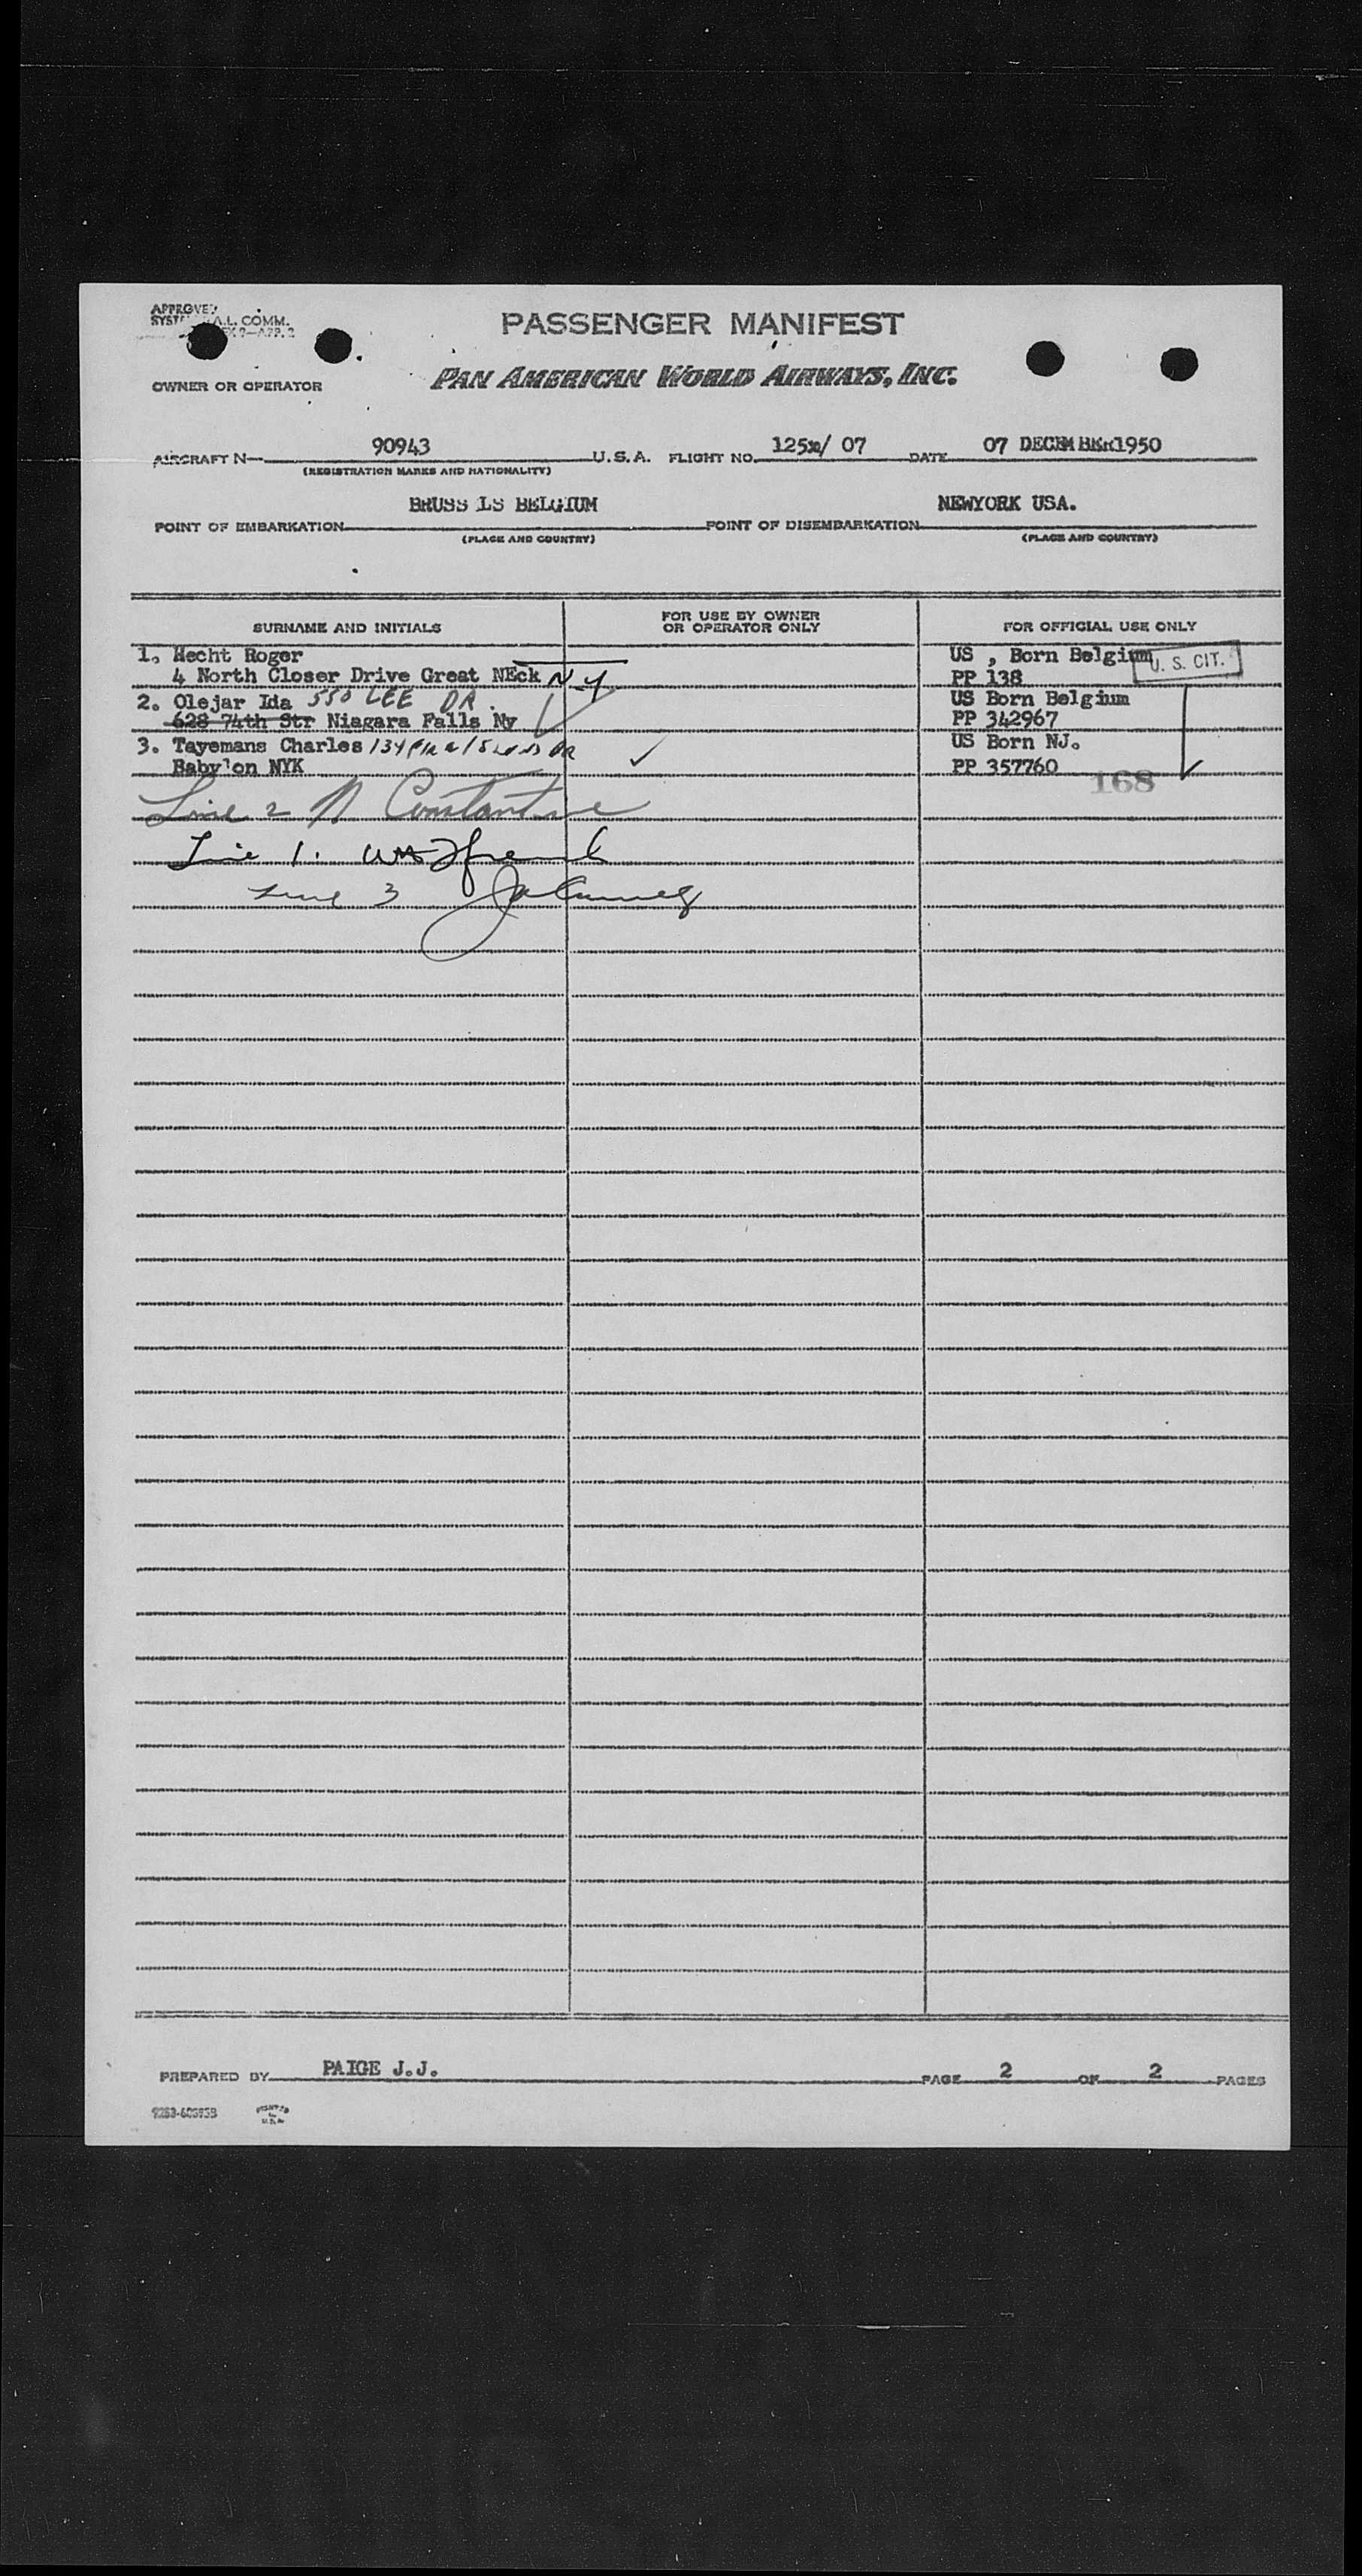 APPROVED
A.L. COMM.
PASSENGER MANIFEST
OWNER OR OPERATOR PAN AMERICAN WORLD AIRWAYS, INC.
AIRCRAFT N— 90943 U.S.A. FLIGHT NO. 125 / 07 DATE 07 DECEMBER1950
(REGISTRATION MARKS AND NATIONALITY)
POINT OF EMBARKATION BRUSS LS BELGIUM POINT OF DISEMBARKATION NEWYORK USA.
(PLACE AND COUNTRY) (PLACE AND COUNTRY)
SURNAME AND INITIALS FOR USE BY OWNER OR OPERATOR ONLY FOR OFFICIAL USE ONLY
1. Hecht Roger US , Born Belgium U. S. CIT.
4 North Closer Drive Great NEck NY PP 138
2. Olejar Ida 550 LEE DR. US Born Belgium
628 74th Str Niagara Falls Ny PP 342967
3. Tayemans Charles 134 DR US Born NJ.
Babylon NYK PP 357760
168
Line 2 N Constantine
Line 1.
Line 3
PREPARED BY PAIGE J.J. PAGE 2 OF 2 PAGES
PRINTED IN U.S.A.